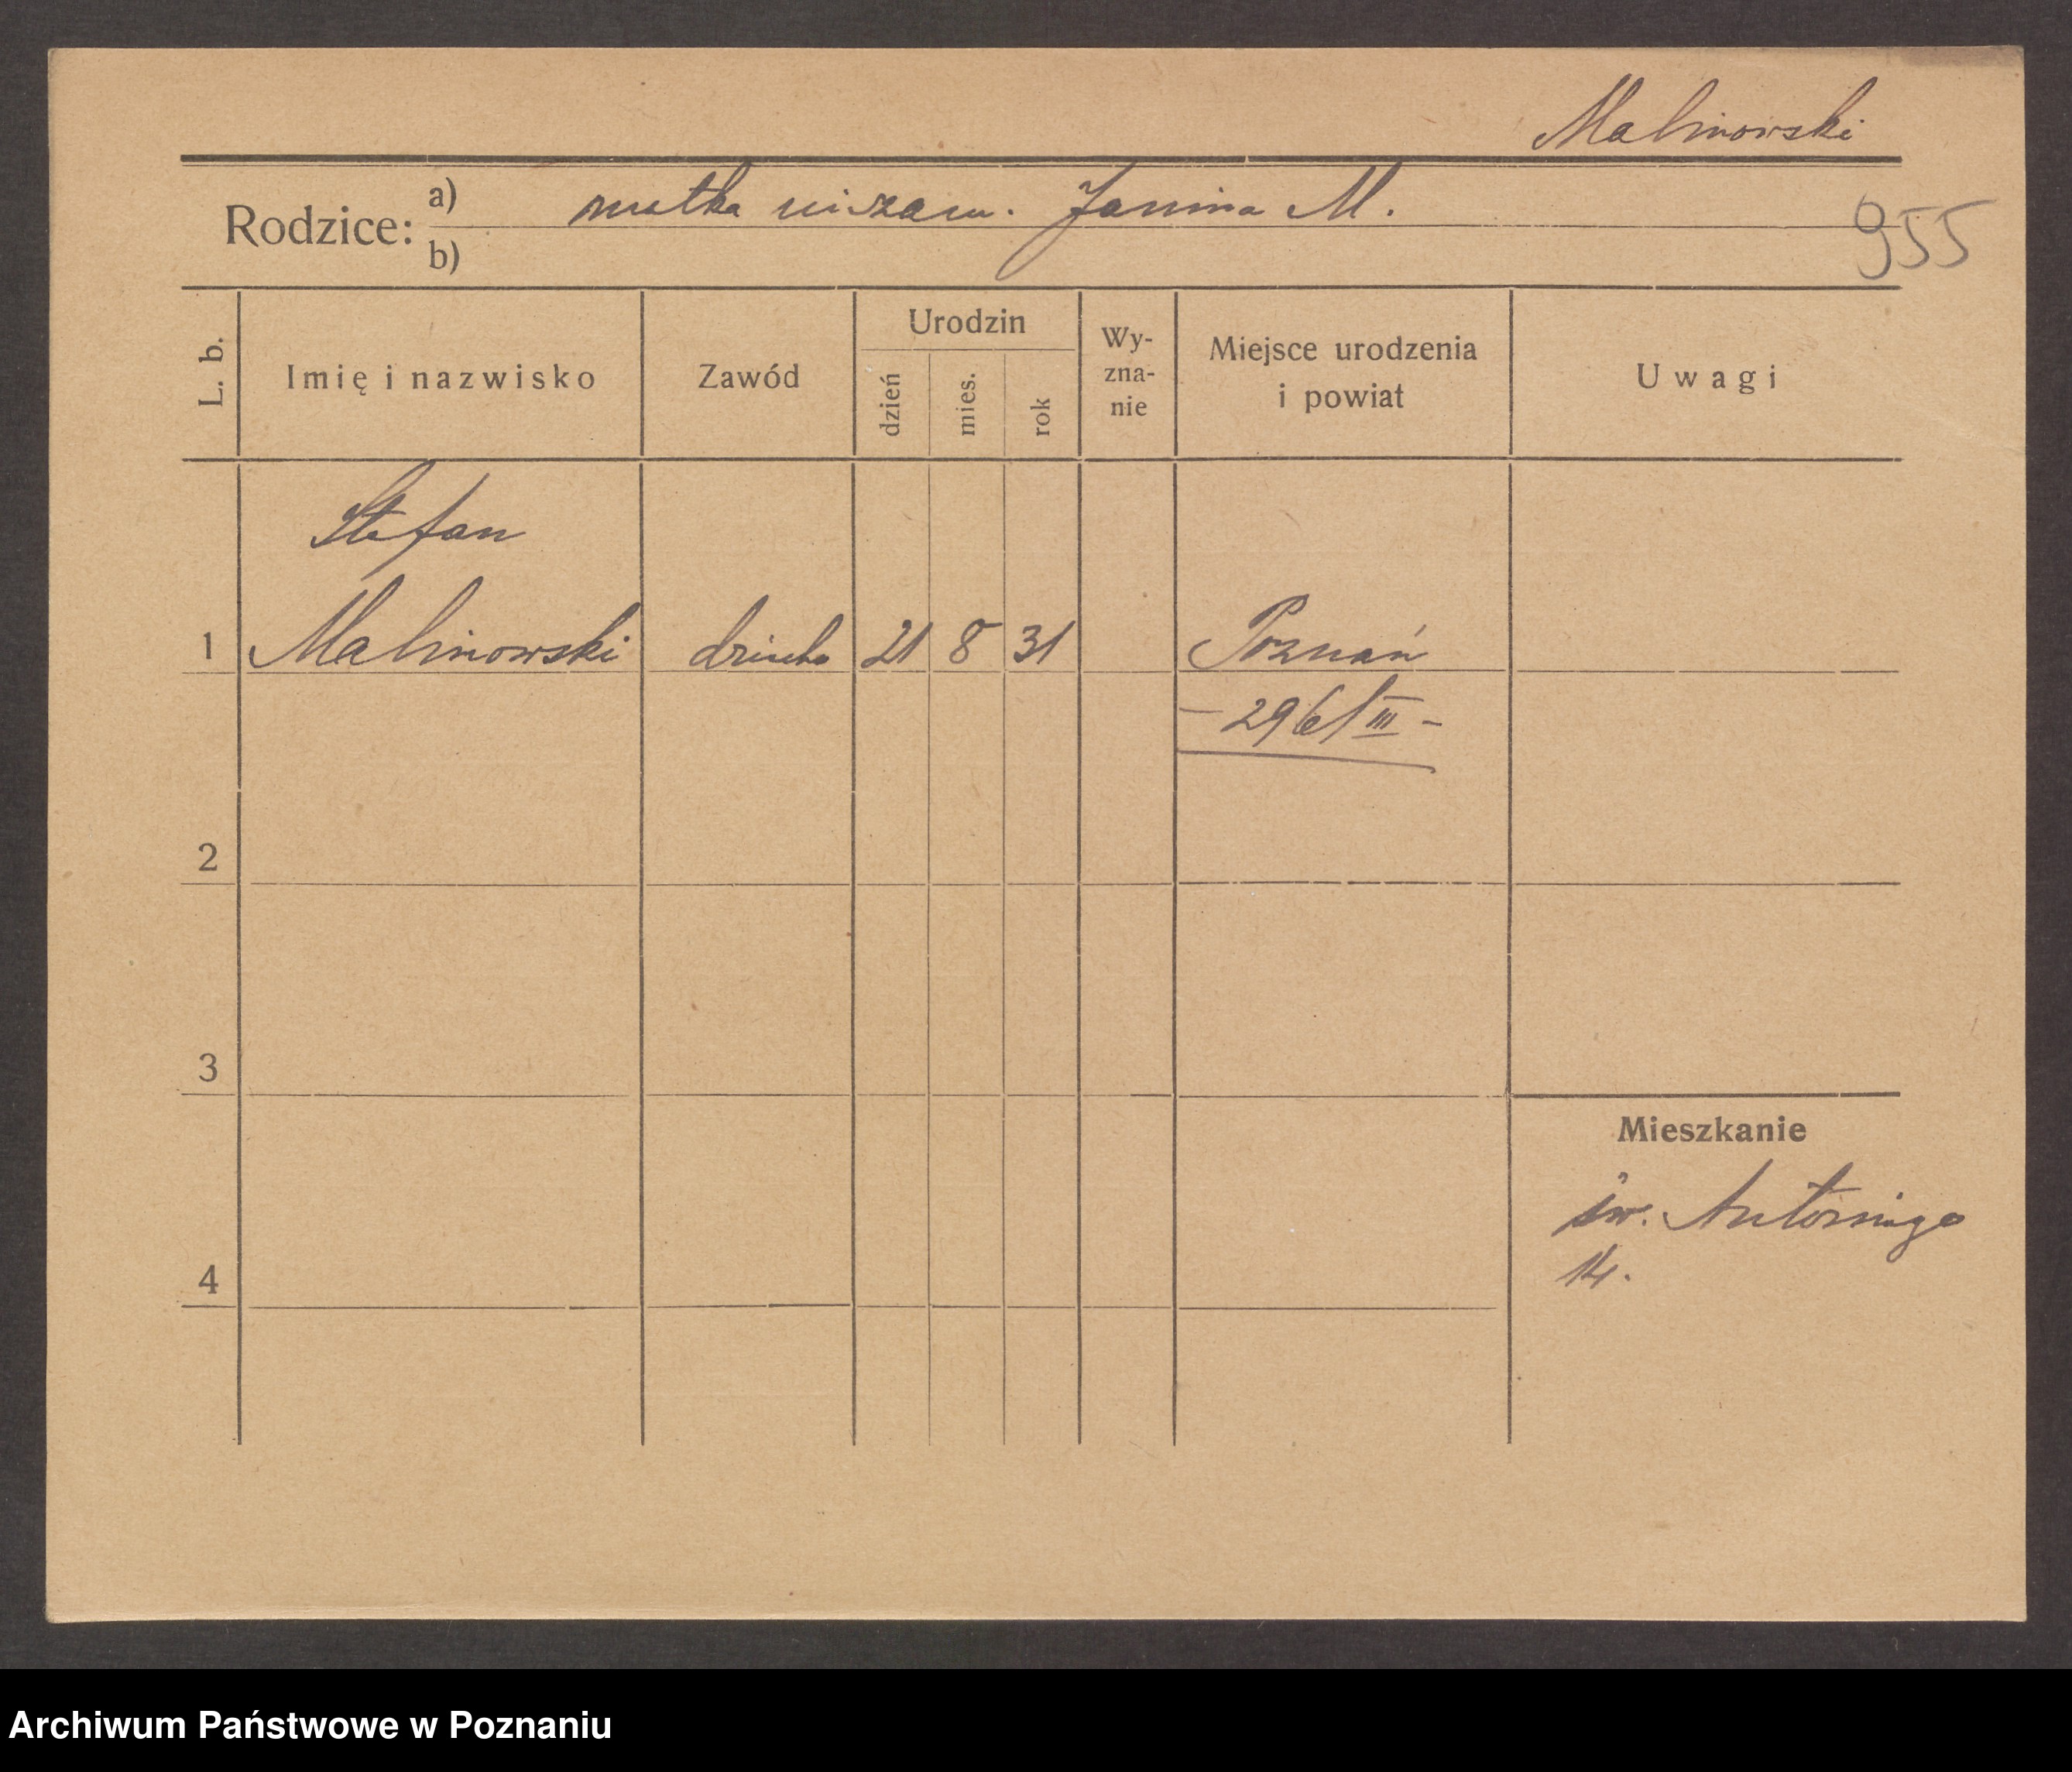 Malinowski
Rodzice: a) matka niezam. Janina M.
b)
955
L. b. Imię i nazwisko Zawód Urodzin dzień mies. rok Wy-zna-nie Miejsce urodzenia i powiat Uwagi
Stefan
1 Malinowski dziecko 21 8 31 Poznań
- 2961 III -
2
3
Mieszkanie
św. Antoniego
14.
4
Archiwum Państwowe w Poznaniu